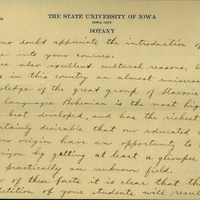 THE STATE UNIVERSITY OF IOWA
IOWA CITY
BOTANY
no doubt appreciate the introduction of
into your courses.
are also excellent cultural reasons,
in this country an almost universal
knowledge of the great group of Slavonic
languages Bohemian is the most high
best developed, and has the richest
certainly desirable that our educated
origin have an opportunity to
horizon by getting at least a glimpse
practically an unknown field.
of these facts it is clear that the
of your students will result